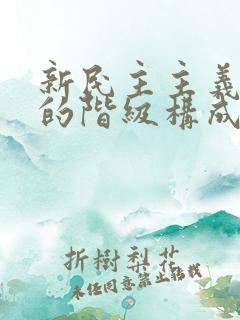 新民主主義
的階級構成
折樹梨花
未經同意禁止轉載